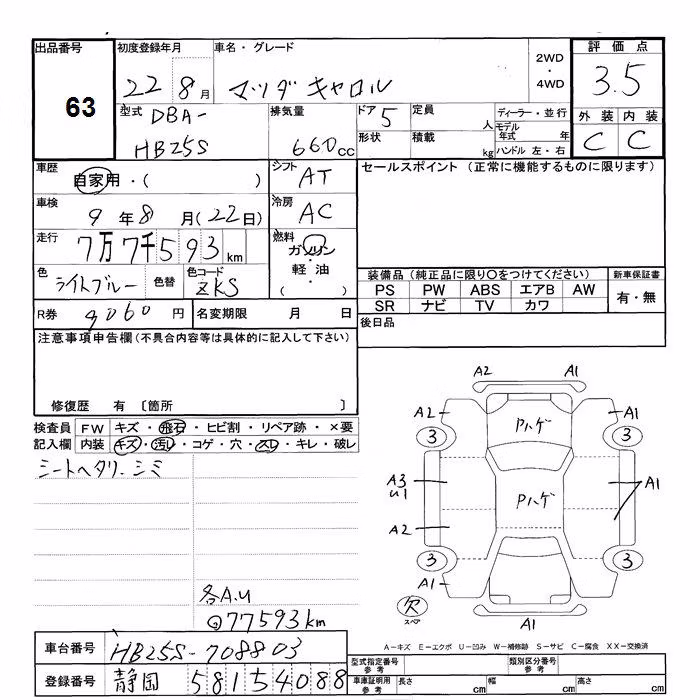 出品番号 63
初度登録年月 22 8月
車名・グレード マツダ キャロル
2WD・4WD
評価点 3.5
外装 内装
C C
型式 DBA-HB25S
排気量 660cc
ドア 5
形状
定員 人
積載 kg
ディーラー・並行
モデル年式 年
ハンドル 左・右
車歴 自家用・( )
シフト AT
車検 9年8月(22日)
冷房 AC
走行 7万7千593km
燃料 ガソリン・軽油・( )
色 ライトブルー
色替
色コード ZKS
R券 9060円
名変期限 月 日
セールスポイント (正常に機能するものに限ります)
装備品 (純正品に限り○をつけてください)
PS PW ABS エアB AW
SR ナビ TV カワ
新車保証書
有・無
後日品
注意事項申告欄(不具合内容等は具体的に記入して下さい)
修復歴 有 〔箇所 〕
検査員記入欄
FW キズ・飛石・ヒビ割・リペア跡・×要
内装 キズ・汚レ・コゲ・穴・スレ・キレ・破レ
シートヘタリ.シミ
各A.U
77593km
A2 A1
A2 A1
Pハゲ
3 3
A3
U1
Pハゲ
A1
A2
3 3
A1
欠
スペア
A1
A-キズ E-エクボ U-凹み W-補修跡 S-サビ C-腐食 XX-交換済
車台番号 HB25S-708803
登録番号 静岡 581 5 4088
型式指定番号 参考
類別区分番号 参考
車庫証明用 参考
長さ cm
幅 cm
高さ cm